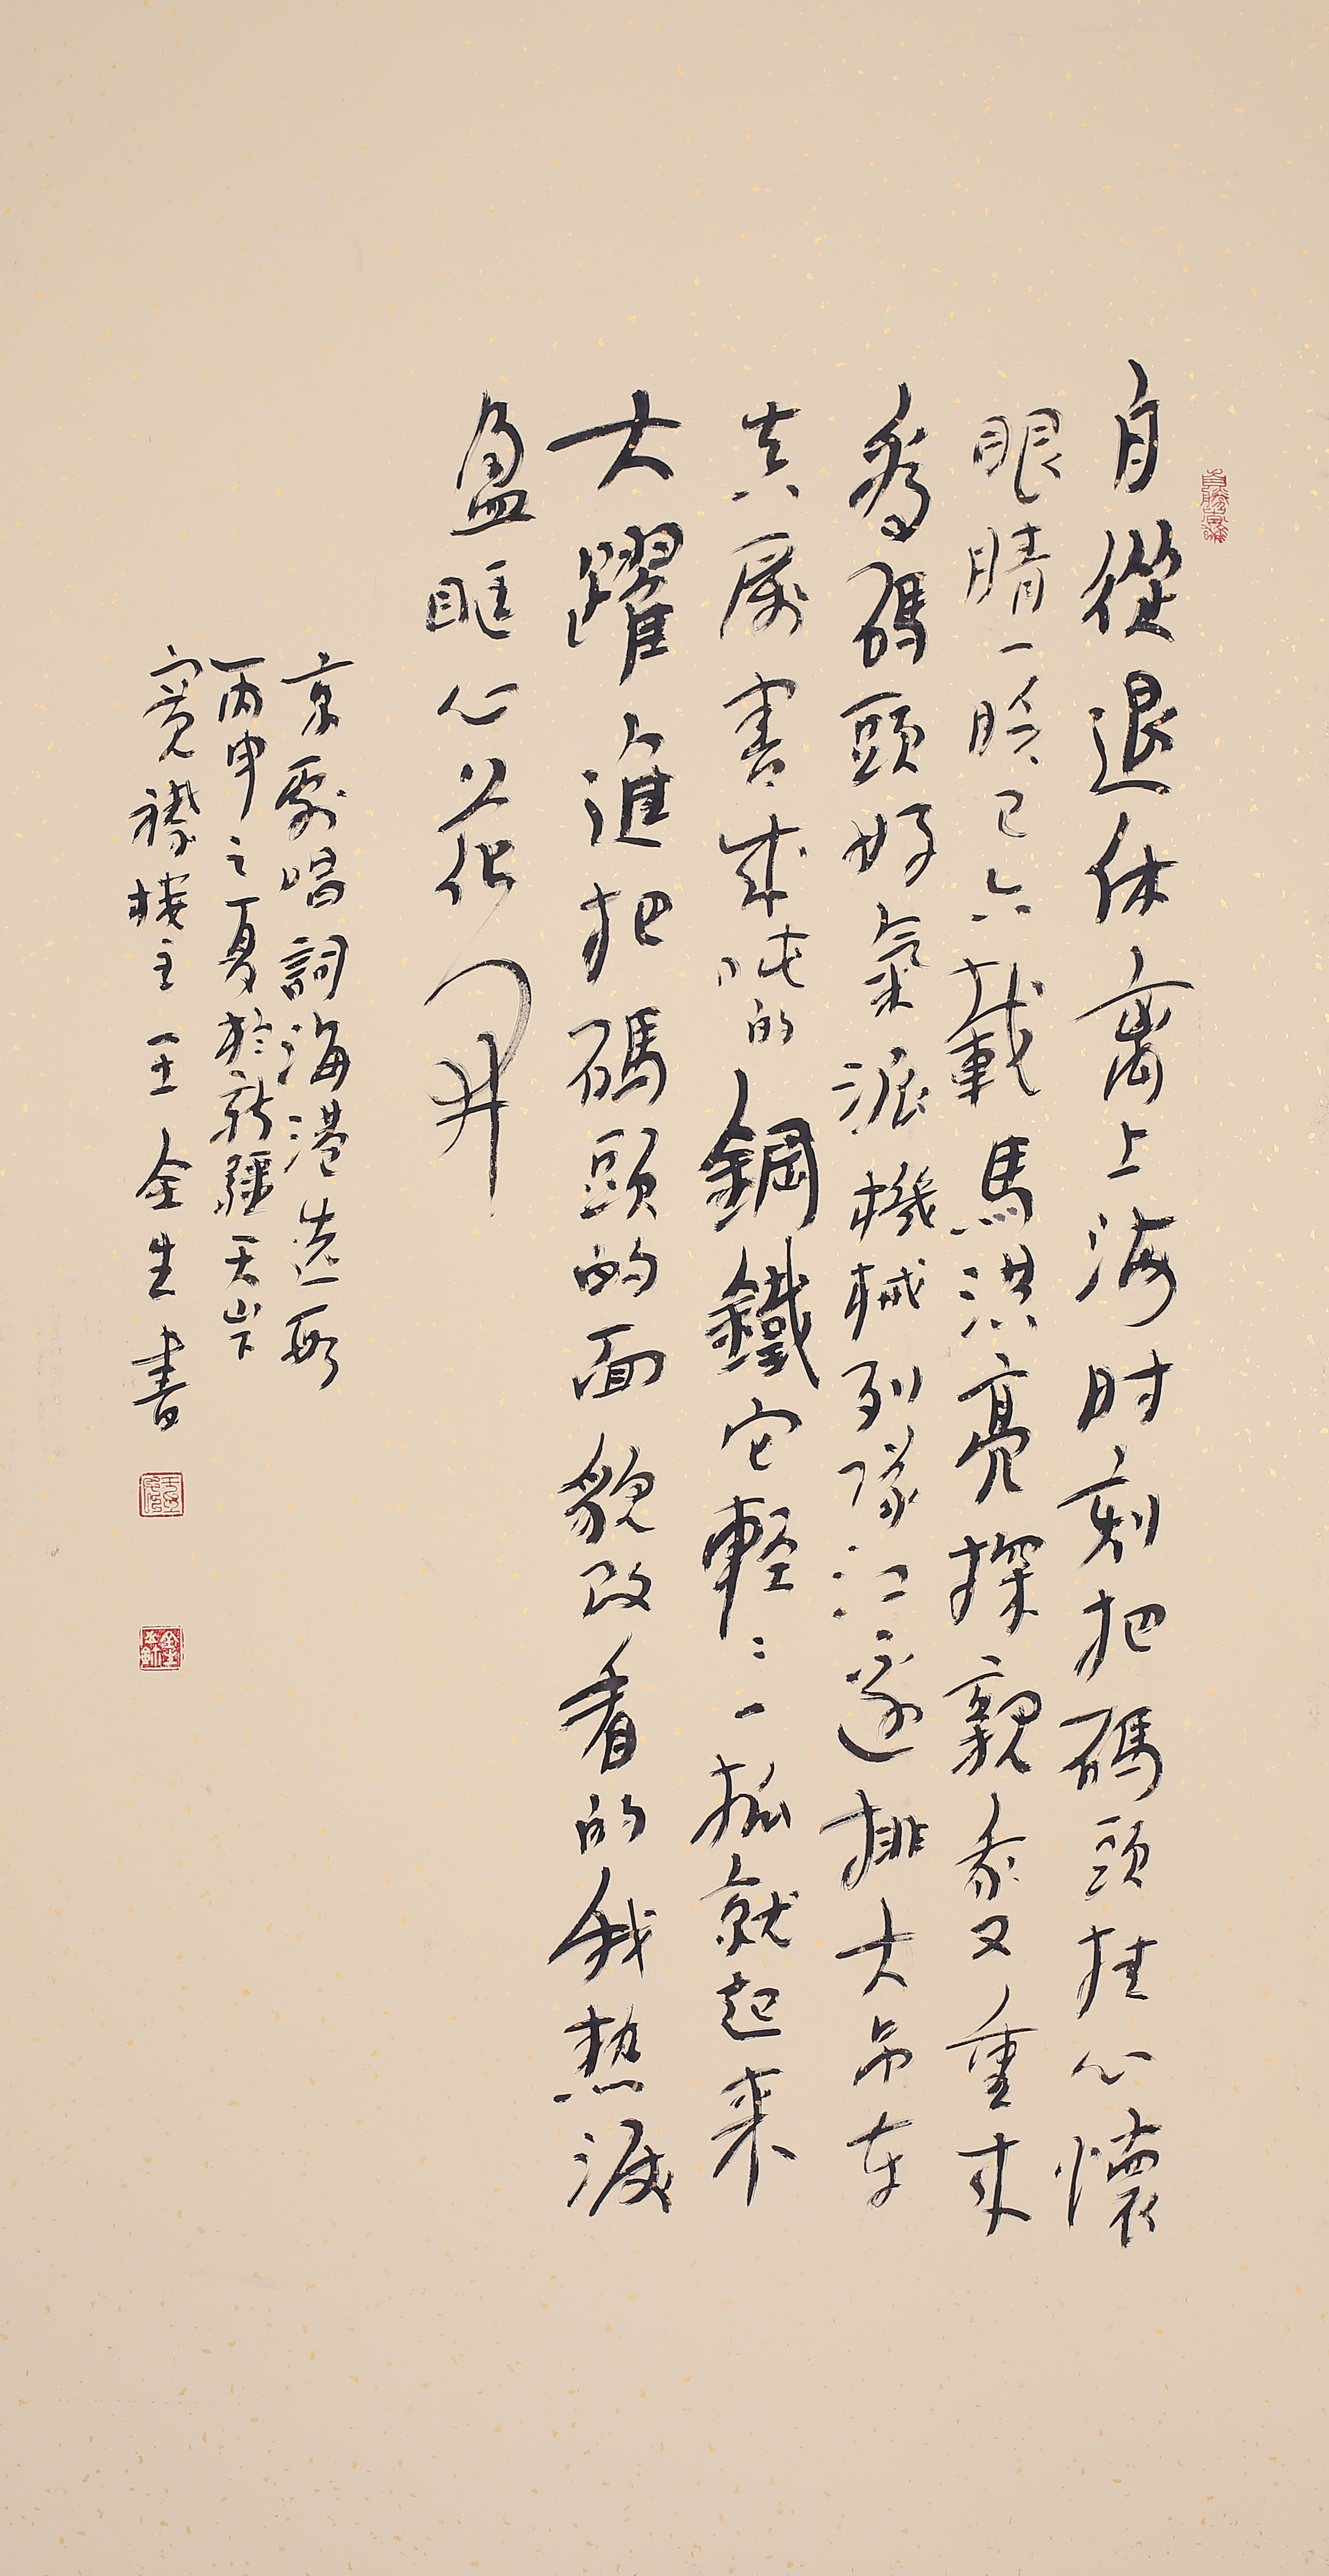 自從退休离上海时刻把碼頭挂心懷
眼睛一眨已六載馬洪亮探親我又重来
看碼頭好氣派機械列隊江邊排大吊车
真厲害成吨的鋼鐵它輕〻一抓就起来
大躍進把碼頭的面貌改看的我热淚
盈眶心花開
京劇唱詞海港选段
丙申之夏於新疆天山下
寬襟樓主王金生書